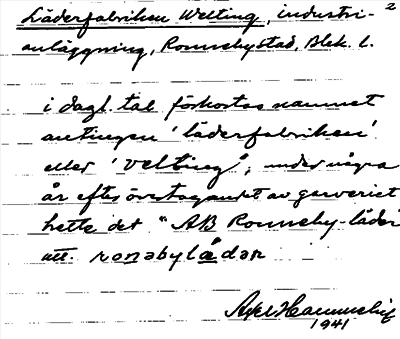 2
Läderfabriken Welting, industri-
anläggning, Ronneby stad, Blek. l.
i dagl. tal förkortas namnet
antingen 'läderfabriken'
eller 'velting', under några
år efter övertagandet av garveriet
hette det "AB Ronneby-läder"
utt. ronəbylädər
Axel
1941